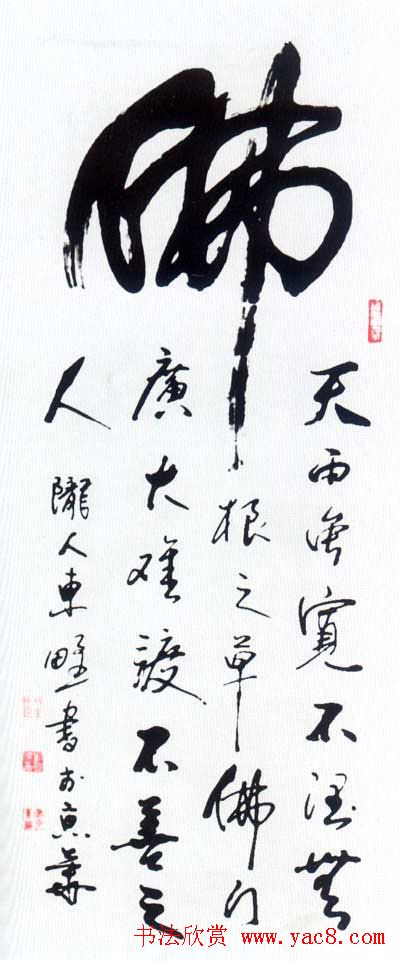 佛
天雨雖寬不潤無
根之草佛门
廣大難渡不善之
人
隴人東野書於京華
书法欣赏 www.yac8.com